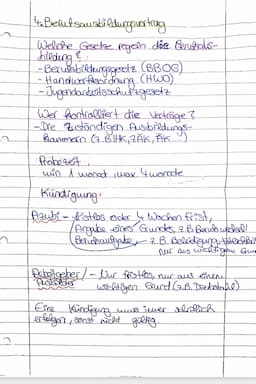 4. Berufsausbildungsvertrag
Welche Gesetze regeln die Berufs-
bildung?
- Berufsbildungsgesetz (BBOG)
- Handwerksordnung (HWO)
- Jugendarbeitsschutzgesetz
Wer kontrolliert die Verträge?
- Die zuständigen Ausbildungs-
kammern (z.B IHK, ZÄK, ÄK...)
Probezeit.
min 1 monat, max 4 monate
Kündigung.
Azubi - fristlos oder 4 Wochen Frist,
Angabe eines Grundes, z.B Berufswechsel
Berufsaufgabe, z.B. Beleidigung,
nur aus wichtigem Grund
Arbeitgeber/ - Nur fristlos, nur aus einem
Ausbilder wichtigen Grund (z.B. Diebstahl)
Eine Kündigung muss immer schriftlich
erfolgen, sonst nicht gültig.